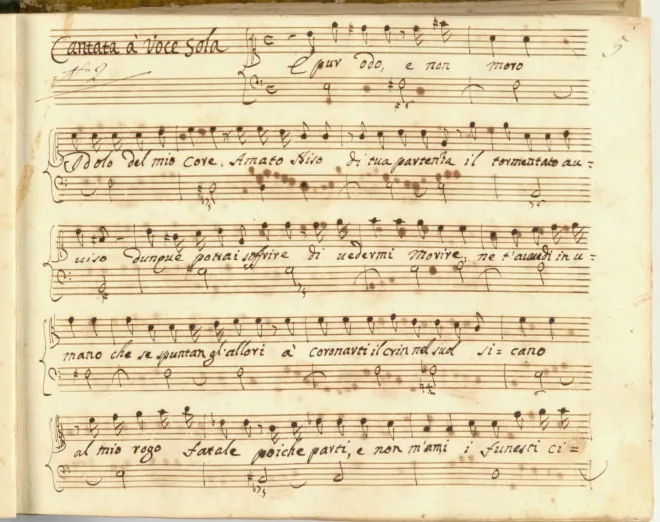 Cantata à Voce Sola
5
E pur odo, e non moro
Idolo del mio core. Amato Niso di tua partenza il tormentato au=
uiso dunque potrai soffrire di uedermi morire, ne t'auuedi in u=
mano che se spuntan gl'allori à coronarti il crin nel suol si=cano
al mio rogo fatale poiche parti, e non m'ami i funesti ci=